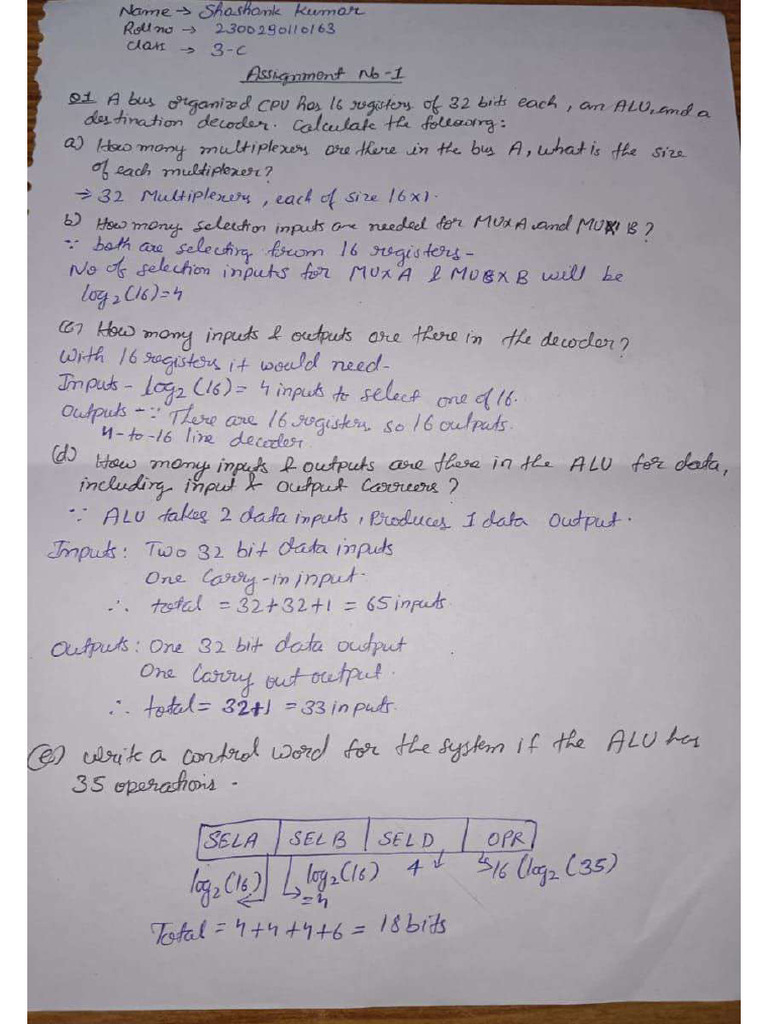 Name → Shashank Kumar
Roll no → 2300290110163
Class → 3-C
Assignment No-1
Q1 A bus organized CPU has 16 registers of 32 bits each, an ALU, and a
destination decoder. Calculate the following:
a) How many multiplexers are there in the bus A, what is the size
of each multiplexer?
⇒ 32 Multiplexers, each of size 16x1.
b) How many selection inputs are needed for MUX A and MUX B?
∵ both are selecting from 16 registers-
No of selection inputs for MUX A & MUX B will be
log₂(16)=4
(c) How many inputs & outputs are there in the decoder?
With 16 registers it would need-
Inputs - log₂(16) = 4 inputs to select one of 16.
Outputs - ∵ There are 16 registers so 16 outputs.
4-to-16 line decoder
(d) How many inputs & outputs are there in the ALU for data,
including input & output carreers?
∵ ALU takes 2 data inputs, Produces 1 data output.
Inputs: Two 32 bit data inputs
One carry-in input.
∴ total = 32+32+1 = 65 inputs
Outputs: One 32 bit data output
One carry out output.
∴ total = 32+1 = 33 inputs.
(e) Write a control word for the system if the ALU has
35 operations.
SELA | SELB | SELD | OPR
log₂(16) log₂(16) 4 16 (log₂(35)
=4
Total = 4+4+4+6 = 18 bits